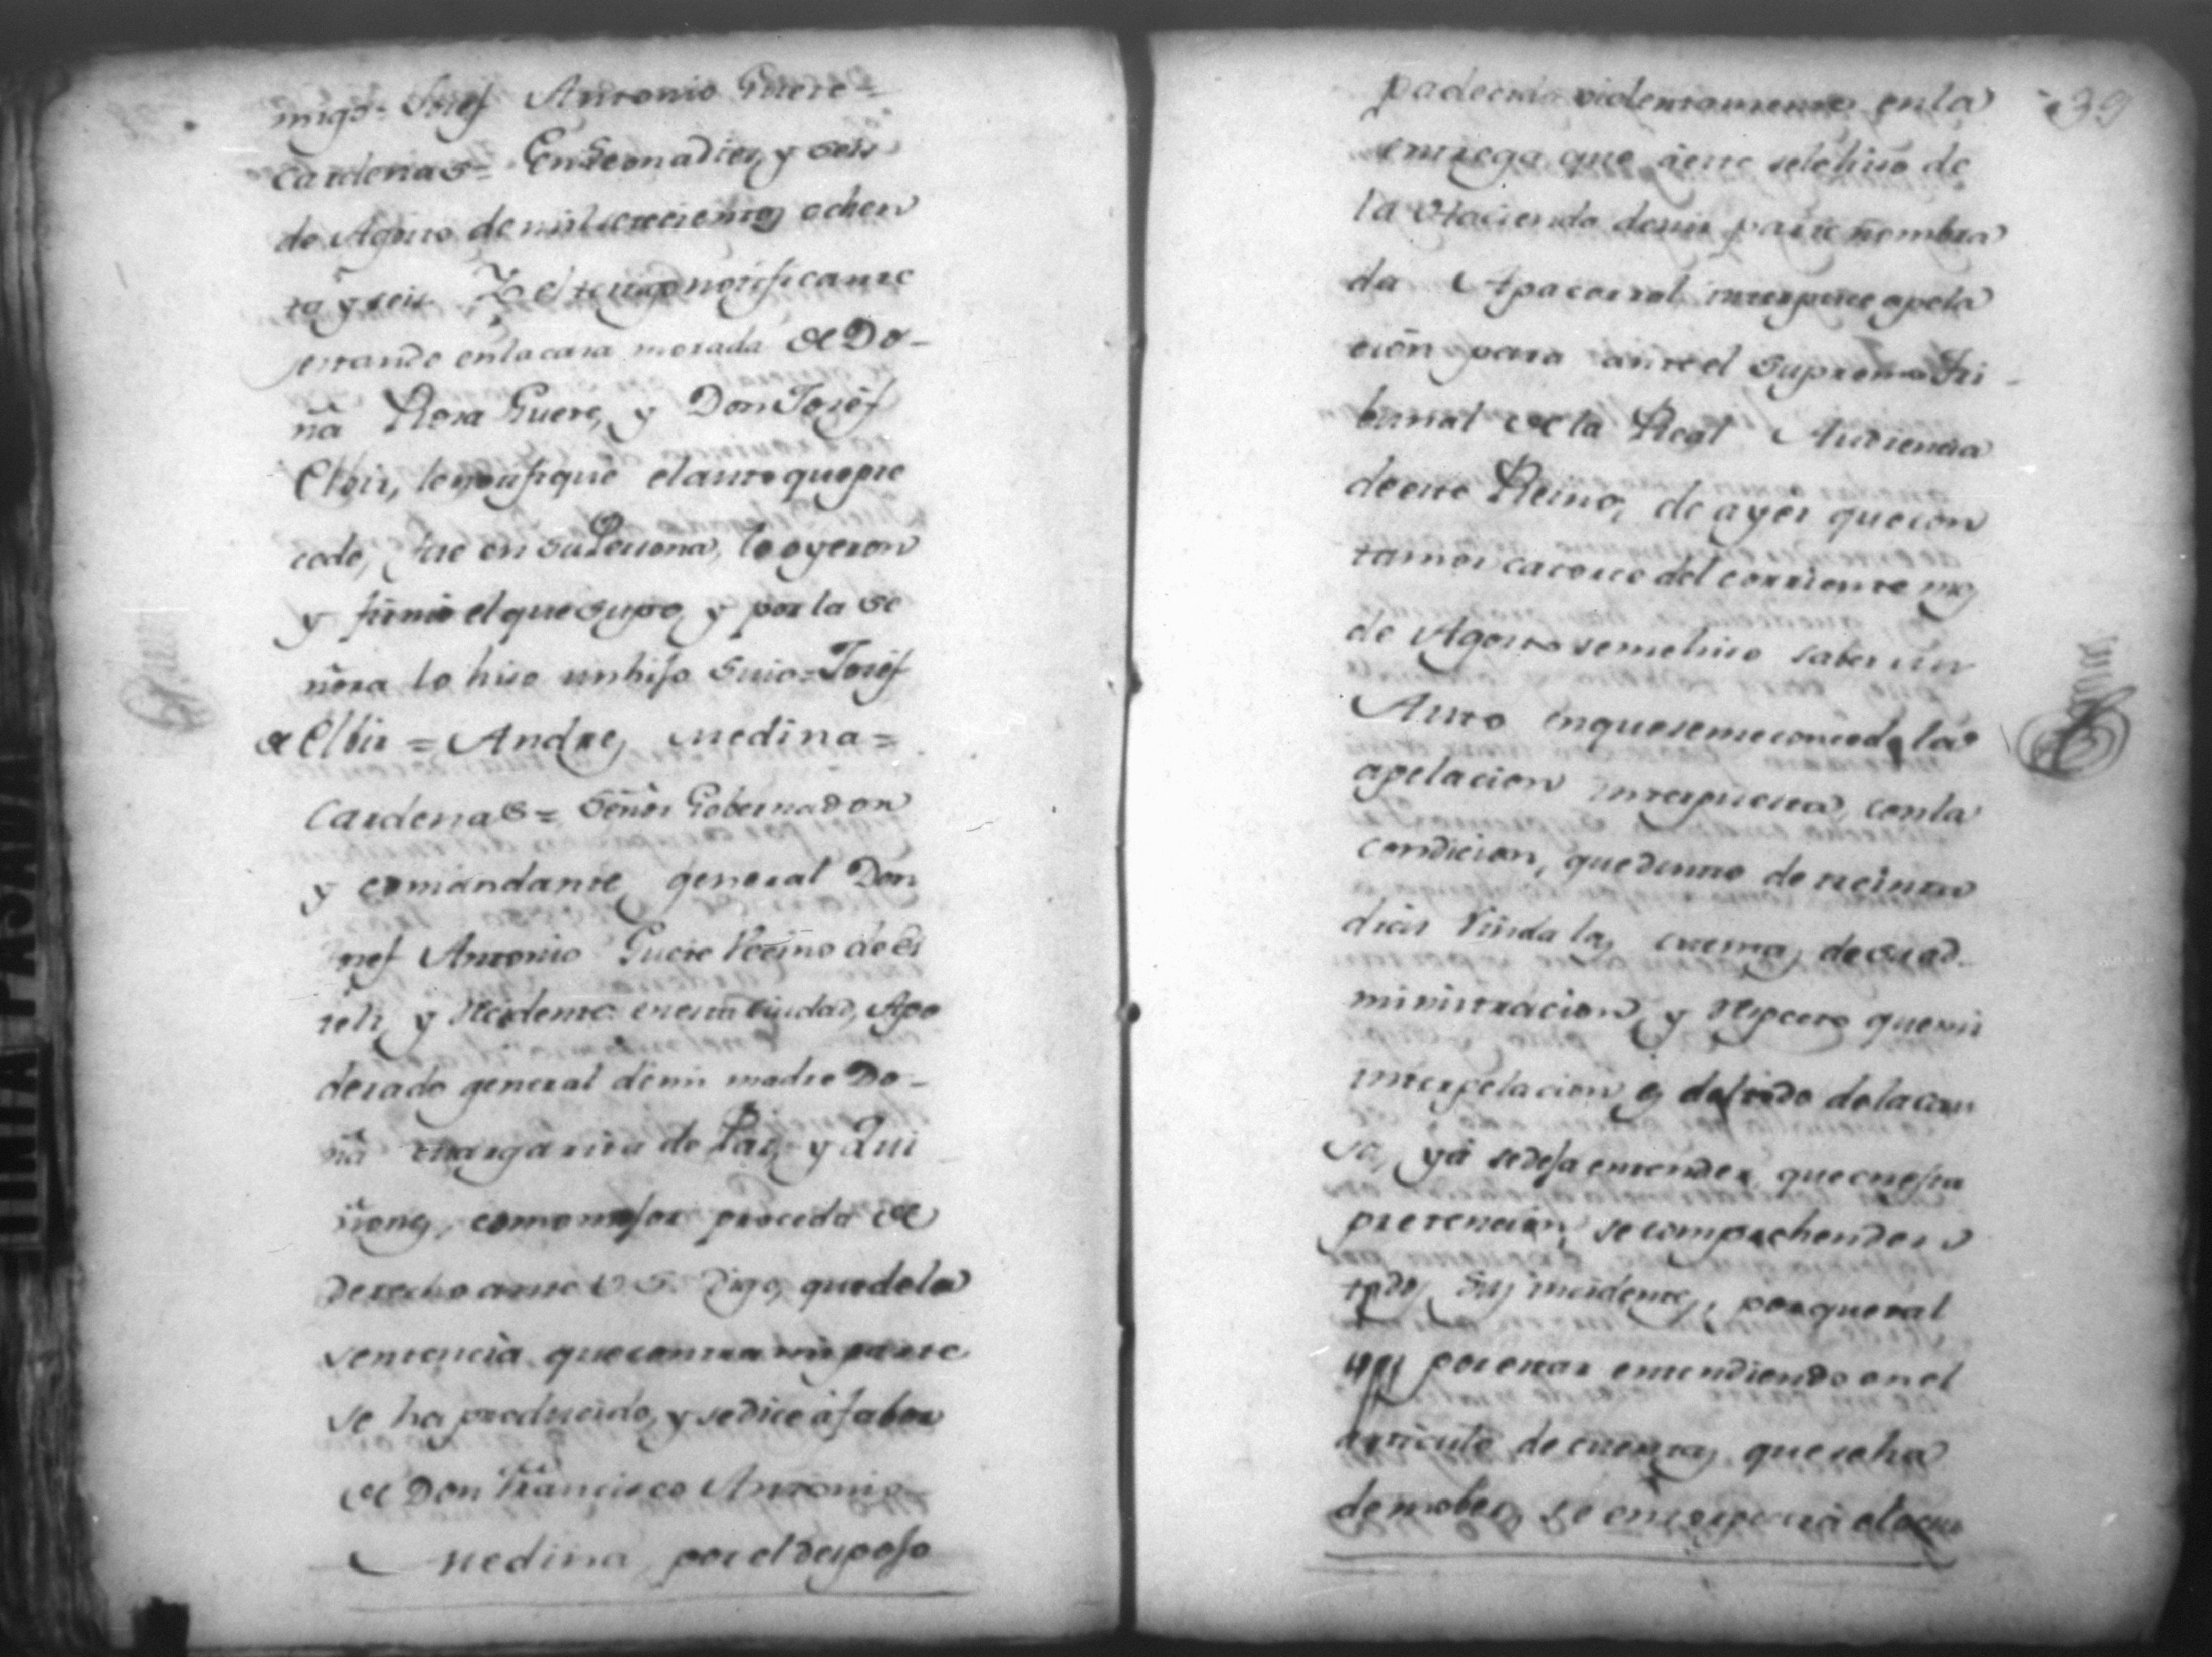 migo = Josef Antonio Guere =
Cardenas = En Leon a dies, y seis
de Agosto de mil setecientos ochen
ta y seis Yo el testigo notificante
estando en la casa morada de Do-
ña Rosa Guere, y Don Josef
Elbir, le notifique el auto que pre
cede, fue en su Persona, lo oyeron
y firmó el que supo, y por la se
ñora lo hiso un hijo suio = Josef
de Elbir = Andres Medina =
Cardenas = Señor Gobernador
y comandante general Don
Josef Antonio Guere Vecino de Es
teli, y recidente en esta ciudad, Apo
derado general de mi madre Do-
ña Margarita de Pas, y Qui
ñones, como mejor proceda de
derecho ante V. S. Digo, que de la
sentencia que contra mi parte
se ha producido, y se dice á fabor
de Don Francisco Antonio
Medina, por el despojo
39
padecido violentamente en la
entrega que á este se le hiso de
la Hacienda de mi parte nombra
da Apacorral interpuse apela
cion para ante el Supremo Tri-
bunal de la Real Audiencia
de este Reino, de ayer que con
tamos catorce del corriente mes
de Agosto se me hiso saber un
Auto en que se me concede la
apelacion interpuesta, con la
condicion, que dentro de treinta
dias rinda las cuentas de su ad-
ministracion, y respecto que mi
interpelacion es del todo de la cau
sa, ya se deja entender, que en esta
pretencion, se comprehenden
todos sus incidentes, porque tal
ves por estar entendiendo en el
articulo de cuentas, que se ha
de mober, se entorpecerá el ocur